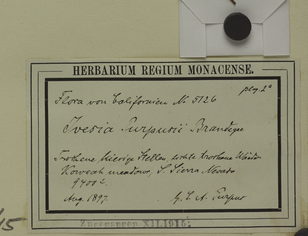 HERBARIUM REGIUM MONACENSE.
Flora von Californien No 5126
Ivesia Purpusii Brandegee
Trockene kiesige Stellen
Kaweah meadows, S. Sierra Nevada
9400'
Aug. 1897. C. A. Purpus
XII.1915
15